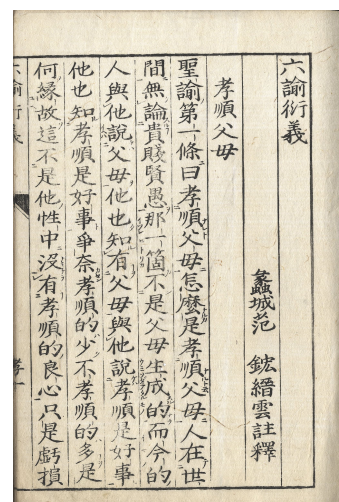 六諭衍義
蠡城范 鋐縉雲註釋
孝順父母
聖諭第一條曰孝順父母怎麽是孝順父母人在世
間無論貴賤賢愚那一箇不是父母生成的而今的
人與他說父母他也知有父母與他說孝順是好事
他也知孝順是好事爭奈孝順的少不孝順的多是
何緣故這不是他性中沒有孝順的良心只是虧損
六諭衍義
孝一